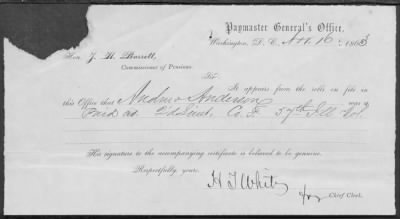 Paymaster General's Office,
Washington, D. C., 16, 1863
Hon. J. H. Barrett,
Commissioner of Pensions.
Sir:
It appears from the rolls on file in
this Office that Andrew Anderson was
Paid as 2d Lieut. Co. F. 57th Ill Vol.
His signature to the accompanying certificate is believed to be genuine.
Respectfully, yours,
White
Chief Clerk.